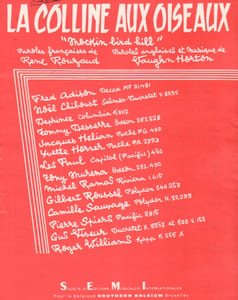 LA COLLINE AUX OISEAUX
"Mockin bird hill"
Paroles françaises de
René Rouzaud
Paroles anglaises et Musique de
Vaughn Horton
Fred Adison Decca MF. 21481
Noël Chiboust Selmer-Ducretet Y. 8595
Defrince Columbia
Tommy Desserre Odéon 282.528
Jacques Hélian Pathé PG. 490
Yvette Horner Pathé PA 2893
Les Paul Capitol (Pacific)
Tony Murena Odéon 282.490
Michel Ramos Riviera
Gilbert Roussel Polydor
Camille Sauvage Polydor
Pierre Spiers Pacific 2815
Gus Viseur Ducretet
Roger Williams Kapp
SOCIÉTÉ DE EDITIONS MUSICALES INTERNATIONALES
Pour la Belgique SOUTHERN BELGIUM Bruxelles